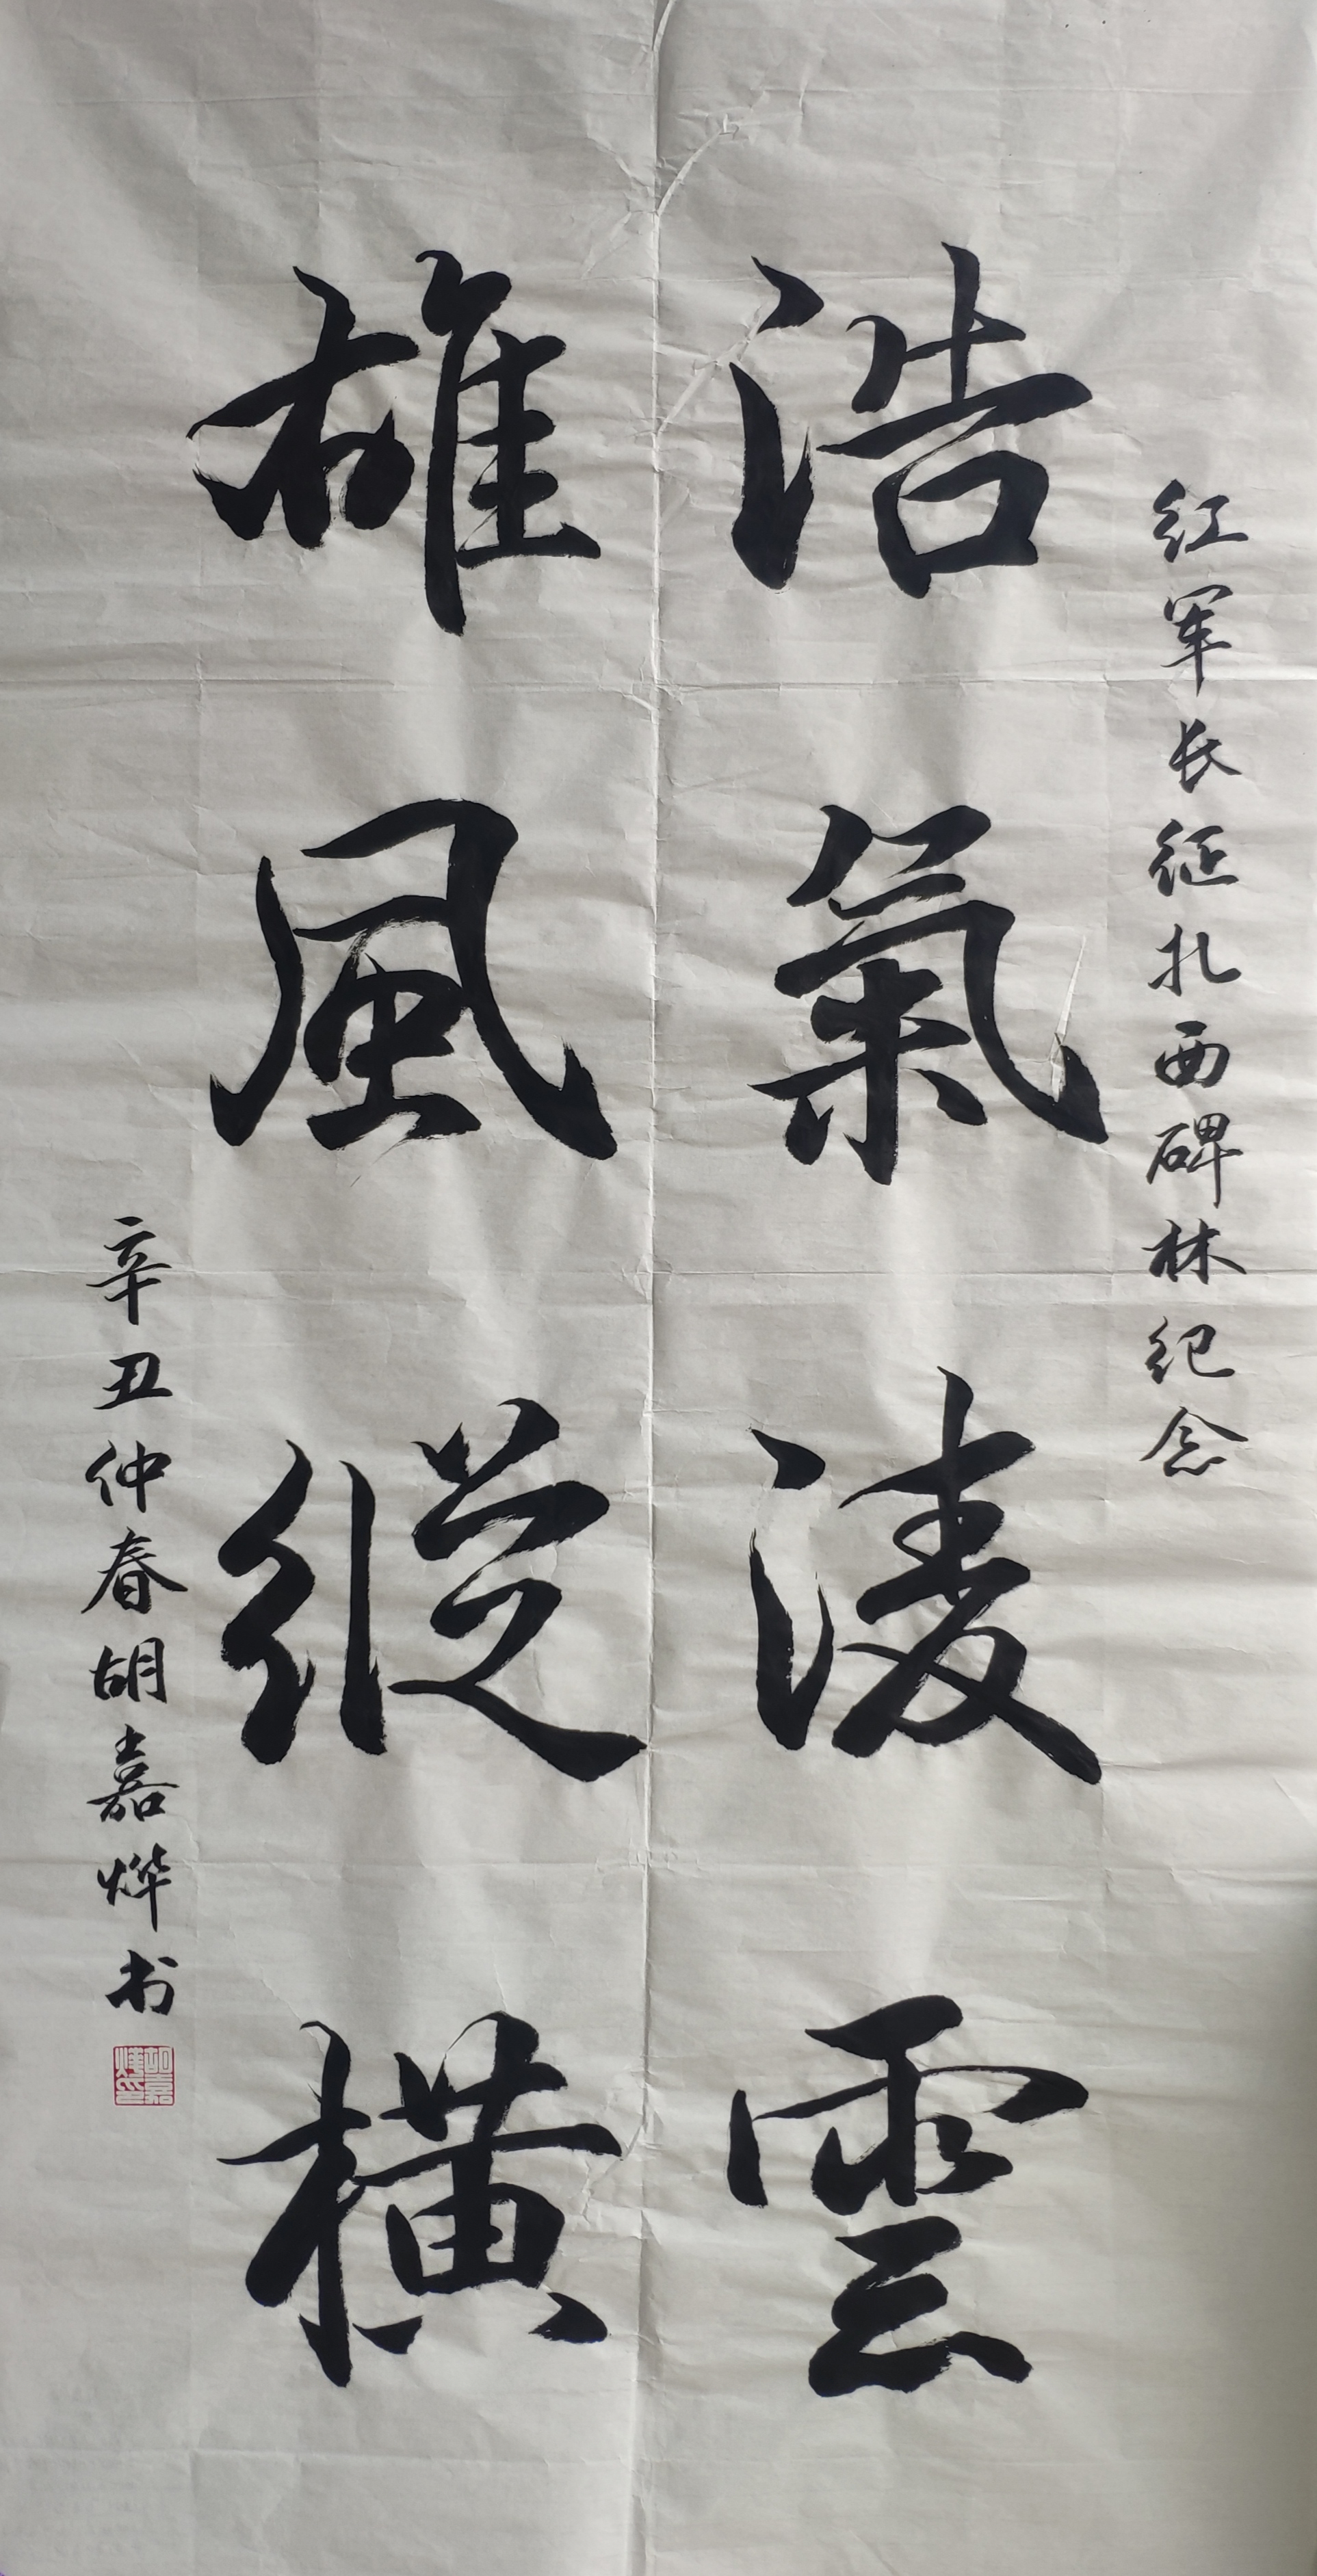 红军长征扎西碑林纪念
浩氣淩雲
雄風縱橫
辛丑仲春胡嘉烨书
胡嘉
燁印